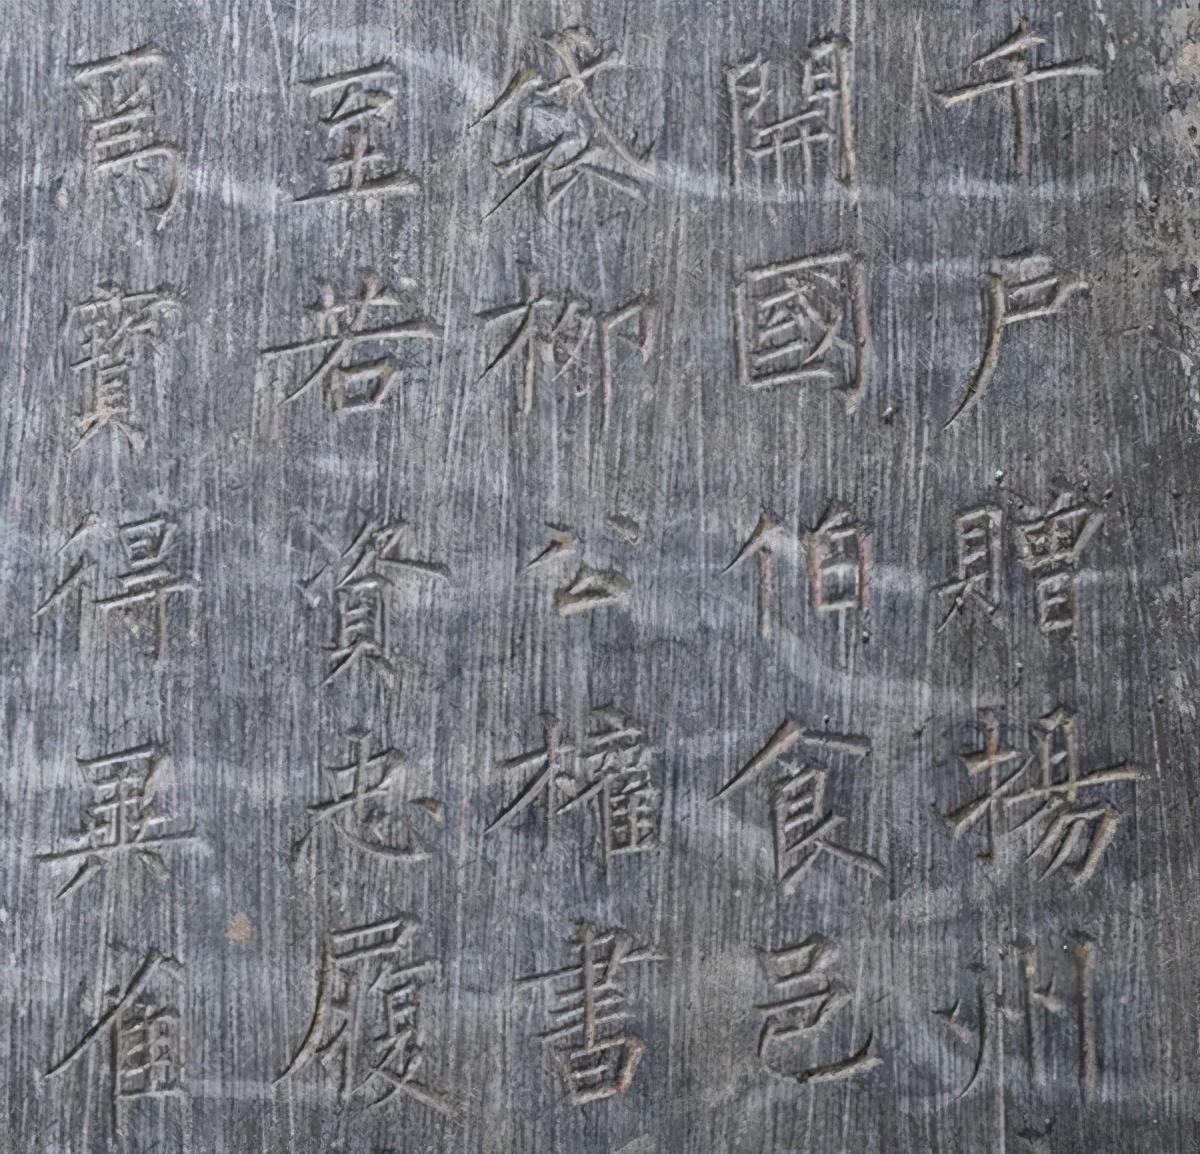 千戶贈揚州
開國伯食邑
袋柳公權書
至若資忠履
爲寶得異隹